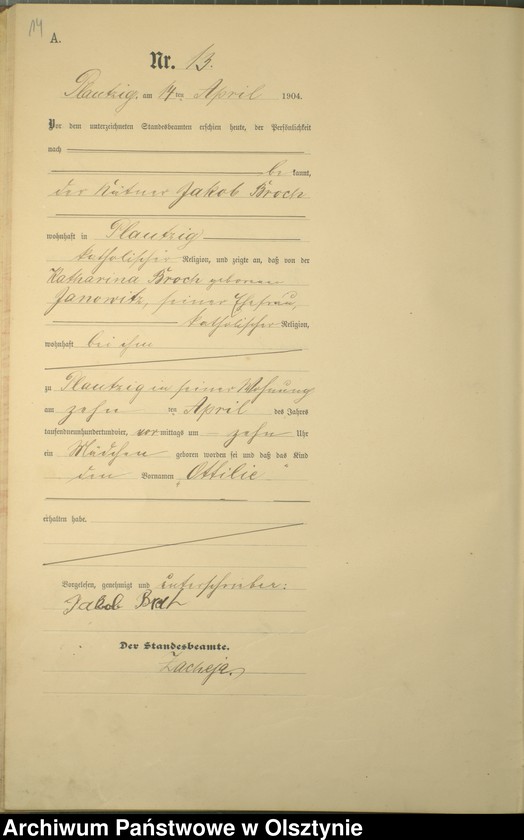 14
A.
Nr. 13.
Plautzig, am 14 ten April 1904.
Vor dem unterzeichneten Standesbeamten erschien heute, der Persönlichkeit
nach
be kannt,
der Kätner Jakob Broch
wohnhaft in Plautzig
katholischer Religion, und zeigte an, daß von der
Katharina Broch geborenen
Janowitz, seiner Ehefrau,
katholischer Religion,
wohnhaft bei ihm
zu Plautzig in seiner Wohnung
am zehn ten April des Jahres
tausendneunhundertundvier, vor mittags um zehn Uhr
ein Mädchen geboren worden sei und daß das Kind
den Vornamen „Ottilie“
erhalten habe.
Vorgelesen, genehmigt und unterschrieben:
Jakob
Der Standesbeamte.
Zacheja.
Archiwum Państwowe w Olsztynie